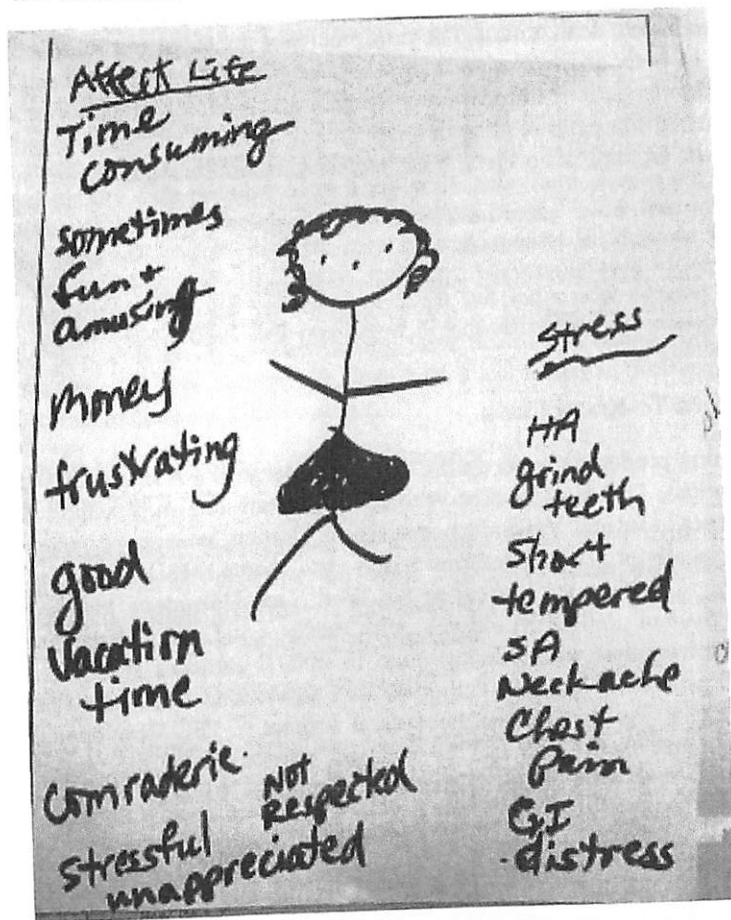 Affect Life
Time
consuming
sometimes
fun +
amusing
money
frustrating
good
Vacation
time
Comraderie.
Not
Respected
stressful
unappreciated
Stress
HA
grind
teeth
short
tempered
SA
Neckache
Chest
Pain
GI
distress